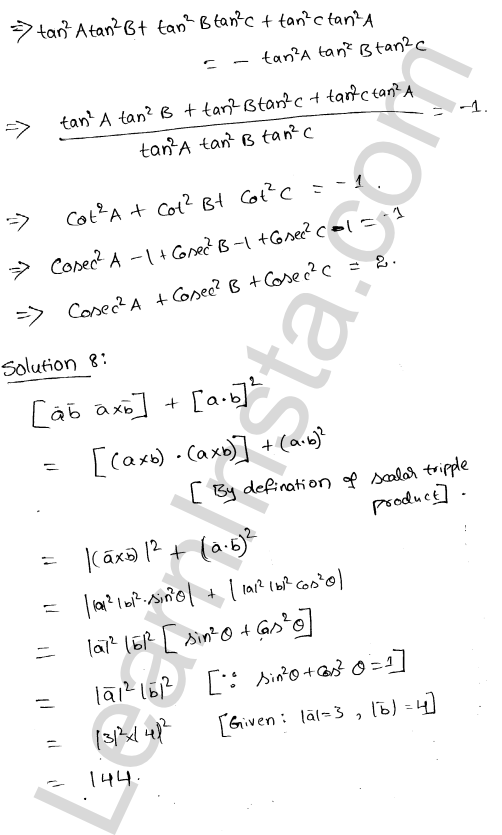 ⇒ tan²A tan²B + tan²B tan²C + tan²C tan²A
= - tan²A tan²B tan²C
⇒ tan²A tan²B + tan²B tan²C + tan²C tan²A / tan²A tan²B tan²C = -1.
⇒ Cot²A + Cot²B + Cot²C = -1.
⇒ Cosec²A -1 + Cosec²B -1 + Cosec²C -1 = -1
⇒ Cosec²A + Cosec²B + Cosec²C = 2.
Solution 8:
[a̅ b̅ a̅×b̅] + [a·b]²
= [(a×b)·(a×b)] + (a·b)²
[By defination of scalar tripple
product].
= |(a̅×b̅)|² + (a̅·b̅)²
= ||a|²|b|²·sin²θ| + ||a|²|b|²cos²θ|
= |a̅|²|b̅|² [sin²θ + Cos²θ]
= |a̅|²|b̅|² [∵ sin²θ + Cos²θ = 1]
= |3|²×|4|² [Given: |a̅|=3, |b̅|=4]
= 144.
LearnInsta.com